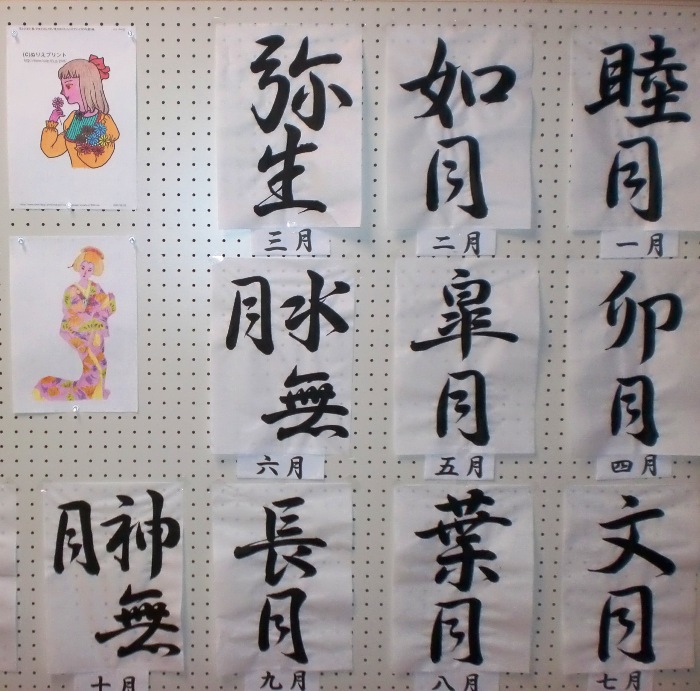 睦月
一月
如月
二月
弥生
三月
卯月
四月
皐月
五月
水無
月
六月
文月
七月
葉月
八月
長月
九月
神無
月
十月
(C)ぬりえプリント